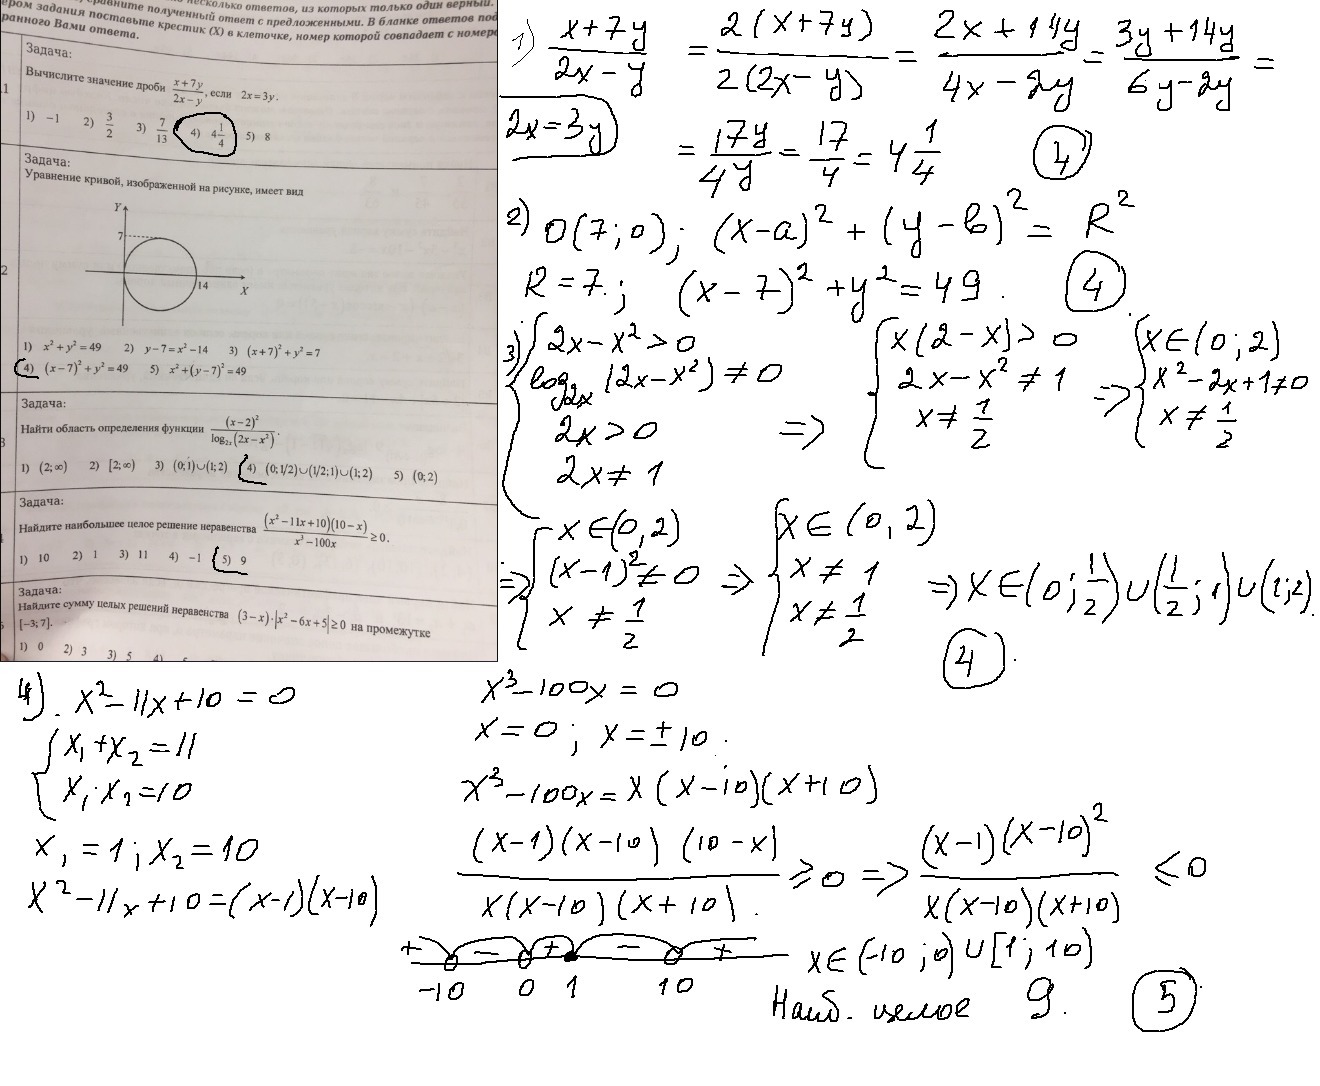 ером задания поставьте крестик (X) в клеточке, номер которой совпадает с номеро
ранного Вами ответа.
Задача:
.1
Вычислите значение дроби (x+7y)/(2x−y), если 2x=3y.
1) −1 2) 3/2 3) 7/13 4) 4 1/4 5) 8
Задача:
Уравнение кривой, изображенной на рисунке, имеет вид
Y
7
2
14
X
1) x²+y²=49 2) y−7=x²−14 3) (x+7)²+y²=7
4) (x−7)²+y²=49 5) x²+(y−7)²=49
Задача:
3
Найти область определения функции (x−2)²/log₂ₓ(2x−x²).
1) (2;∞) 2) [2;∞) 3) (0;1)∪(1;2) 4) (0;1/2)∪(1/2;1)∪(1;2) 5) (0;2)
Задача:
Найдите наибольшее целое решение неравенства (x²−11x+10)(10−x)/(x³−100x) ≥0.
1) 10 2) 1 3) 11 4) −1 5) 9
Задача:
Найдите сумму целых решений неравенства (3−x)·|x²−6x+5|≥0 на промежутке
[−3;7].
1) 0 2) 3 3) 5 4)
1) (x+7y)/(2x−y) = 2(x+7y)/2(2x−y) = (2x+14y)/(4x−2y) = (3y+14y)/(6y−2y) =
2x=3y
= 17y/4y = 17/4 = 4 1/4 4
2) O(7;0); (x−a)²+(y−b)²= R²
R=7.; (x−7)²+y²=49. 4
3) { 2x−x²>0
log₂ₓ(2x−x²)≠0
2x>0
2x≠1
=> { x(2−x)>0
2x−x²≠1
x≠1/2
=> { x∈(0;2)
x²−2x+1≠0
x≠1/2
=> { x∈(0,2)
(x−1)²≠0
x≠1/2
=> { x∈(0,2)
x≠1
x≠1/2
=> x∈(0;1/2)∪(1/2;1)∪(1;2).
4.
4). x²−11x+10=0
{ x₁+x₂=11
x₁·x₂=10
x₁=1; x₂=10
x²−11x+10=(x−1)(x−10)
x³−100x=0
x=0; x=±10.
x³−100x=x(x−10)(x+10)
(x−1)(x−10)(10−x)/x(x−10)(x+10) ≥0 => (x−1)(x−10)²/x(x−10)(x+10) ≤0
+ − + − +
−10 0 1 10
x∈(−10;0)∪[1;10)
Наиб. целое 9. 5